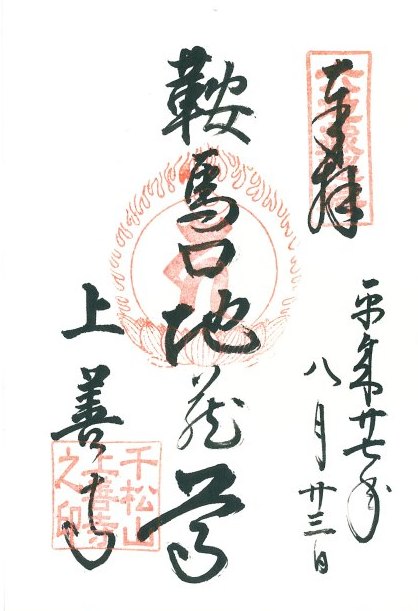 奉拝
平成廿七年
八月廿三日
鞍馬口地蔵尊
上善寺
千松山
上善寺
之印